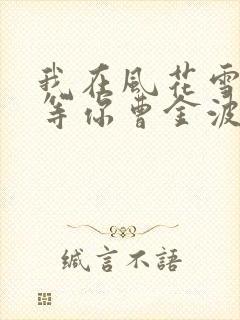 我在風花雪
等你曹金波
緘言不語